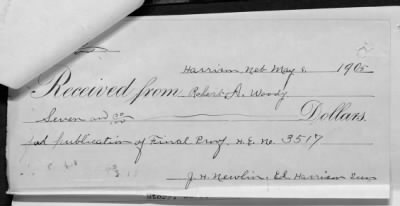 Harrison, Neb May 6. 1905
Received from Robert A. Woody
Seven and 00/100 Dollars.
for publication of Final Proof H.E. No. 3517
J. H. Newlin, Ed Harrison Sun